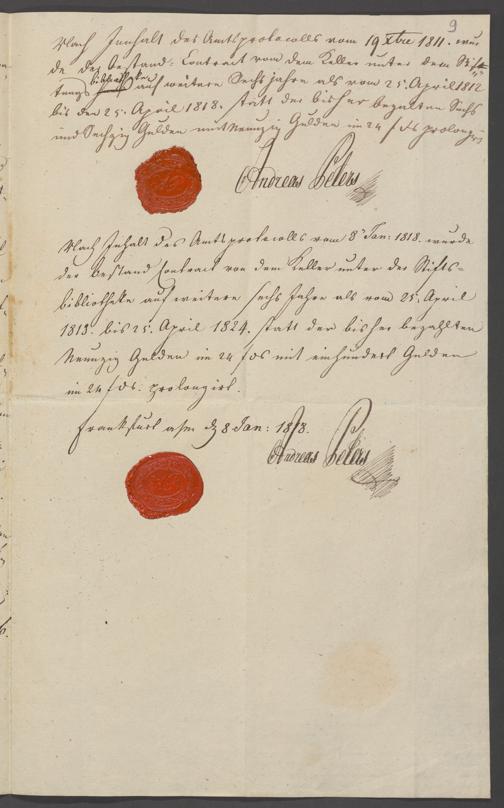 9
Nach Innhalt des Amtsprotocolls vom 19 Xbre 1811. wur
de der Bestand: Contract von dem Keller unter dem Stif
tungs bibliotheke auf weitere Sechs jahre als vom 25. April 1812
bis den 25. April 1818. statt der bisher bezalten Sechs
und Sechzig Gulden mit Neunzig Gulden im 24 f ds prolongirt
Andreas Peters
Nach Inhalt des Amtsprotocolls vom 8 Jan: 1818. wurde
der Bestand Contract von dem Keller unter der Stifts=
bibliotheke auf weitere sechs Jahre als vom 25. April
1818. bis 25. April 1824. statt der bisher bezahlten
Neunzig Gulden im 24 f ds mit einhundert Gulden
im 24 f ds. prolongirt.
Frankfurt a/m d 8 Jan: 1818.
Andreas Peters